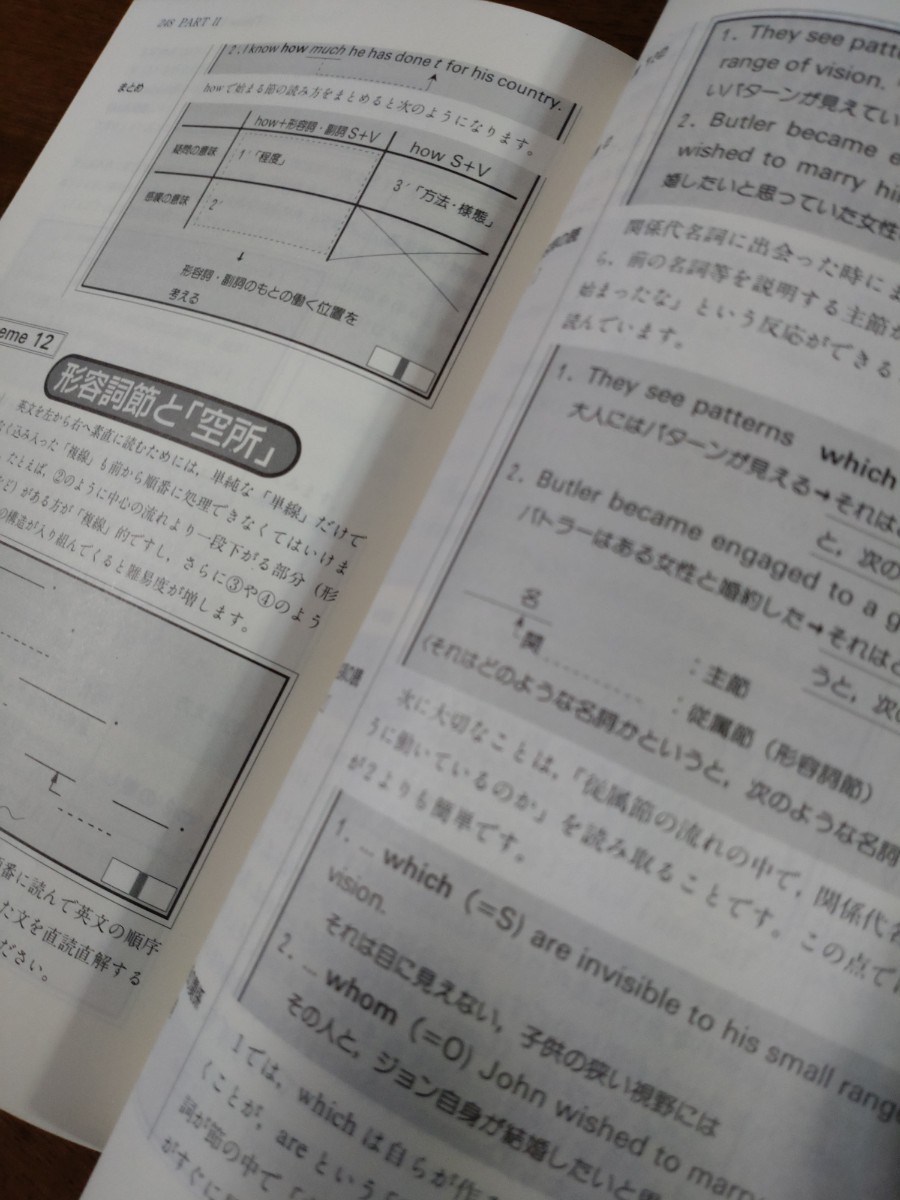 248 PART II
2. I know how much he has done t for his country.
まとめ
howで始まる節の読み方をまとめると次のようになります。
how+形容詞・副詞 S+V
how S+V
疑問の意味
1「程度」
3´「方法・様態」
感嘆の意味
2´
↓
形容詞・副詞のもとの働く位置を
考える
eme 12
形容詞節と「空所」
英文を左から右へ素直に読むためには，単純な「単線」だけで
なく込み入った「複線」も前から順番に処理できなくてはいけま
たとえば，②のように中心の流れより一段下がる部分（形
ど）がある方が「複線」的ですし，さらに③や④のよう
の構造が入り組んでくると難易度が増します。
順番に読んで英文の順序
た文を直読直解する
ださい。
1. They see patte
range of vision.
いパターンが見えてい
2. Butler became e
wished to marry hi
婚したいと思っていた女性
関係代名詞に出会った時にま
ら，前の名詞等を説明する主節が
始まったな」という反応ができる
読んでいます。
1. They see patterns which
大人にはパターンが見える→それは
と，次の
2. Butler became engaged to a g
バトラーはある女性と婚約した→それは
うと，次の
名
関
：主節
：従属節（形容詞節）
（それはどのような名詞かというと，次のような名詞
次に大切なことは，「従属節の流れの中で，関係代名
うに働いているのか」を読み取ることです。この点で
が2よりも簡単です。
1. … which (=S) are invisible to his small range
vision.
それは目に見えない，子供の狭い視野には
2. … whom (=O) John wished to marry
その人と，ジョン自身が結婚したいと思
1では，which は自らが作
（ことが，are という
詞が節の中で
がすぐに